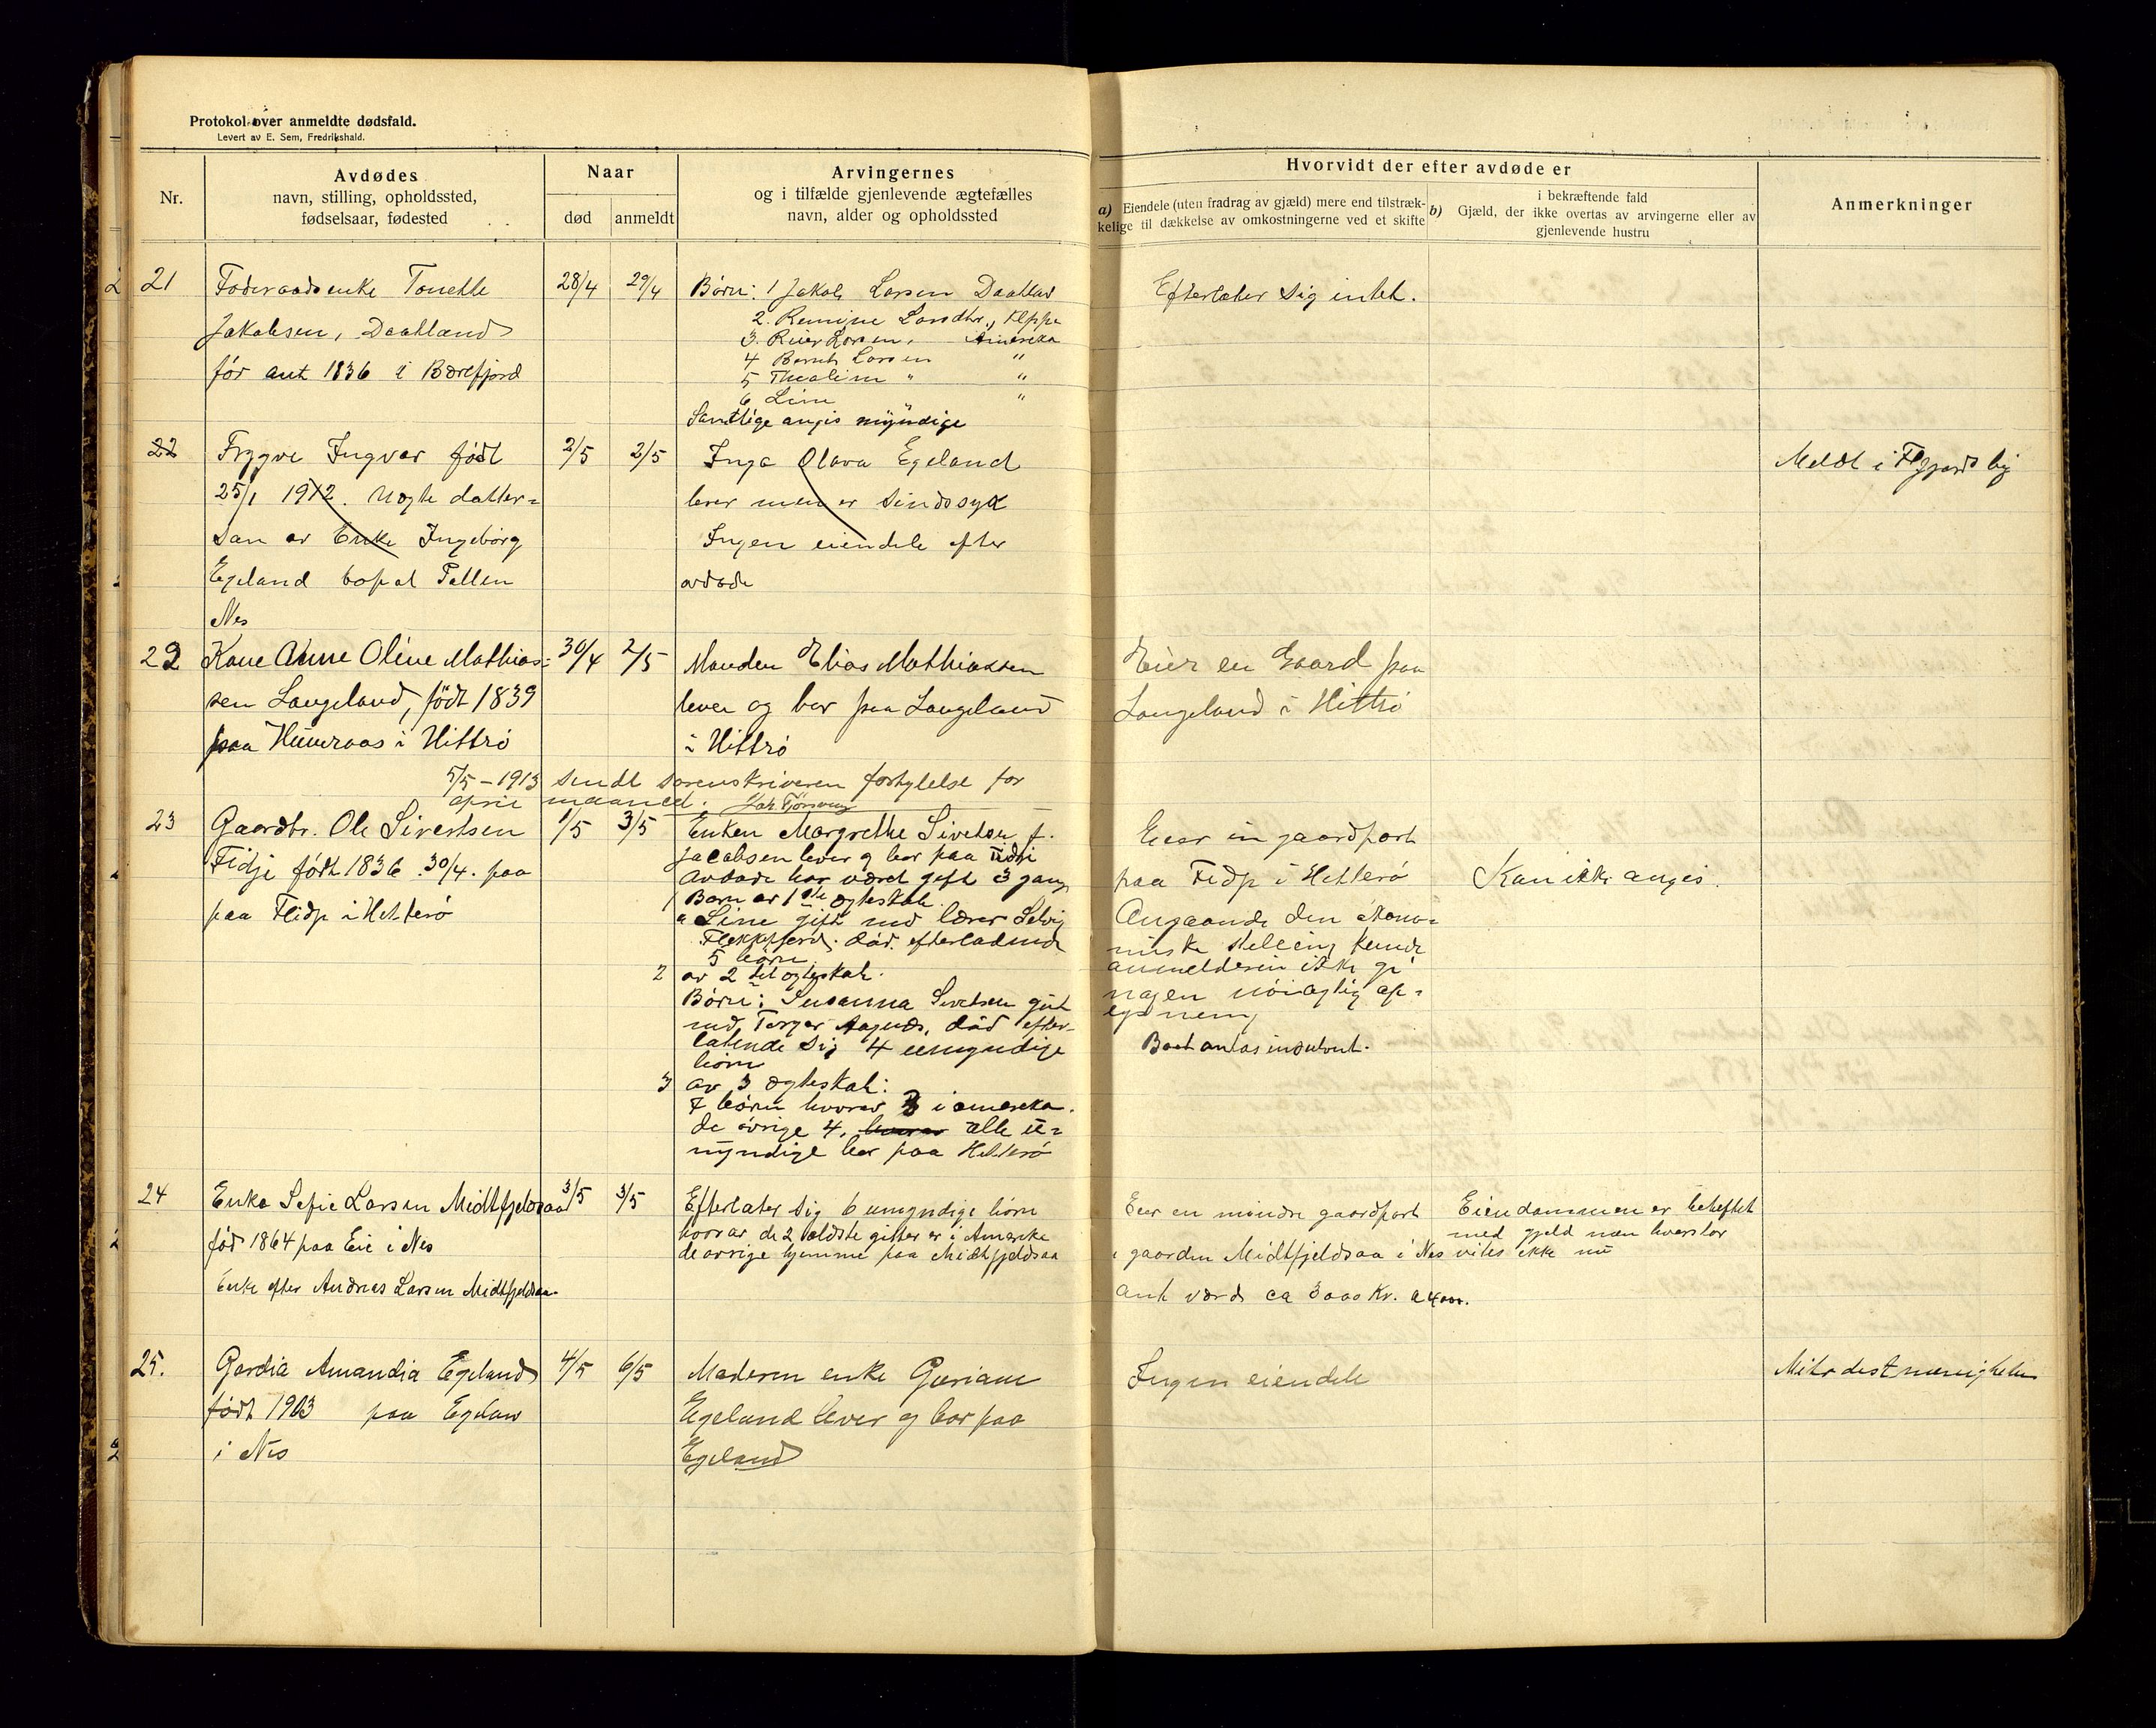 Protokol over anmeldte dødsfald.
Levert av E. Sem, Fredrikshald.
Nr.
Avdødes
navn, stilling, opholdssted,
fødselsaar, fødested
Naar
død
anmeldt
Arvingernes
og i tilfælde gjenlevende ægtefælles
navn, alder og opholdssted
Hvorvidt der efter avdøde er
a) Eiendele (uten fradrag av gjæld) mere end tilstræk-
kelige til dækkelse av omkostningerne ved et skifte
b) i bekræftende fald
Gjæld, der ikke overtas av arvingerne eller av
gjenlevende hustru
Anmerkninger
21
Foderaadsenke Tonette
Jakobsen, Daatland
før ant 1836 i Bærefjord
28/4
29/4
Børn: 1 Jakob Larsen Daatland
2. Remine Larsdtr.,
3. Reier Larsen, Amerika
4 Bernt Larsen "
5 Thealine " "
6 Line "
Samtlige angis myndige
Efterlater sig intet.
22
Trygve Ingvar født
25/1 1912. Uegte datter=
søn av Enke Ingeborg
Egeland bopæl Tellen
Nes
2/5
2/5
Inga Olava Egeland
lever men er sindssyk
Ingen eiendele efter
avdøde
Meldt i Flekkefjords by
22
Kone Anne Oline Mathias=
sen Langeland, født 1839
paa Hummeraas i Hitterø
30/4
2/5
Manden Elias Mathiassen
lever og bor paa Langeland
i Hitterø
Eier en Gaard paa
Langeland i Hitterø
5/5 – 1913 sendt sorenskriveren fortegnelse for
april maaned.
23
Gaardbr. Ole Sivertsen
Fidje født 1836 30/4. paa
paa Fidje i Hitterø
1/5
3/5
Enken Margrethe Sivertsen f.
Jacobsen lever og bor paa Fidje
Avdøde har været gift 3 gang
1 Børn av 1ste ægteskab.
a Line gift med lærer Selvig
Flekkefjord. død. efterladende
5 børn.
2 av 2det ægteskab.
Børn: Susanna Sivertsen gift
med Torger Aagnæs, død efter-
latende sig 4 umyndige
børn
3 av 3 ægteskab:
7 børn hvorav 3 i amerika.
de øvrige 4, hvorav alle u=
myndige bor paa Hitterø
Eier en gaardpart
paa Fidje i Hitterø
Angaaende den økono=
miske stilling kunde
anmelderen ikke gi
nogen nøiagtig op=
lysning
Boet antas insolvent.
Kan ikke angis.
24
Enke Sofie Larsen Midtfjeldsaa
fød 1864 paa Eie i Nes
Enke efter Andreas Larsen Midtfjeldsaa
3/5
3/5
Efterlater sig 6 umyndige børn
hvorav de 2 ældste gifter er i Amerika
de øvrige hjemme paa Midtfjeldsaa
Eier en mindre gaardpart
i gaarden Midtfjeldsaa i Nes
ant værd ca 3000 Kr. a 4000.
Eiendommen er beheftet
med gjeld men hvor stor
vites ikke nu
25.
Gerdia Amandia Egeland
født 1903 paa Egeland
i Nes
4/5
6/5
Moderen enke Guriane
Egeland lever og bor paa
Egeland
Ingen eiendele
Metodistmenigheten